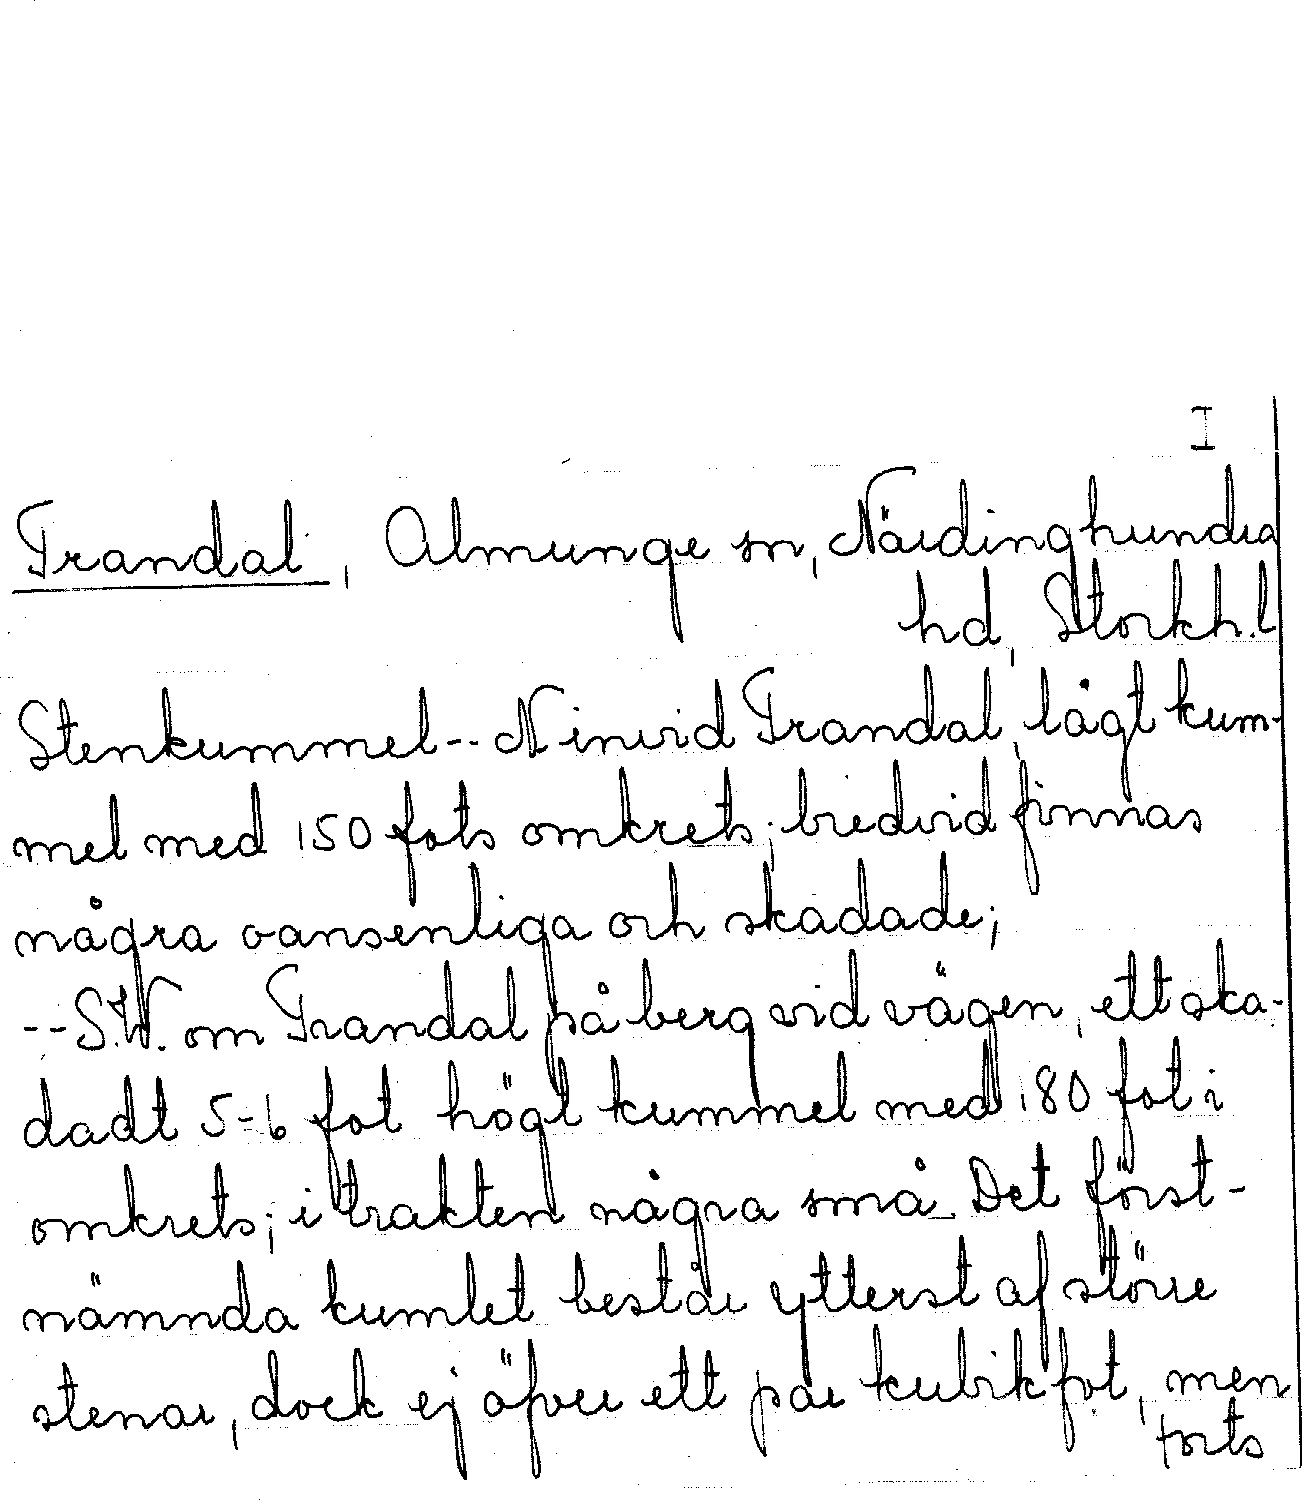 I
Trandal, Almunge sn, Närdinghundra
hd, Stockh.l
Stenkummel-- N invid Trandal, lågt kum-
mel med 150 fots omkrets; bredvid finnas
några oansenliga och skadade;
--S.W. om Trandal på berg vid vägen, ett ska-
dadt 5-6 fot högt kummel med 180 fot i
omkrets; i trakten några små. Det först-
nämnda kumlet består ytterst af större
stenar, dock ej öfver ett par kubikfot, men
forts